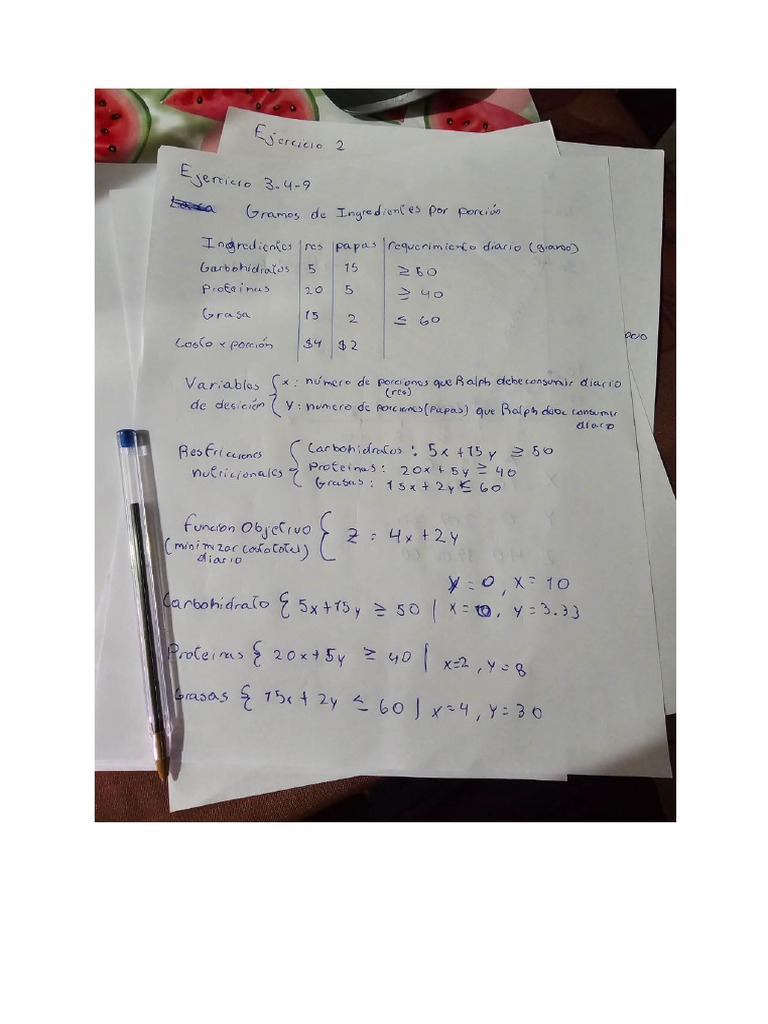 Ejercicio 2
Ejercicio 3.4-9
Gramos de Ingredientes por porción
Ingredientes | res | papas | requerimiento diario (gramos)
Carbohidratos 5 15 ≥ 50
Proteinas 20 5 ≥ 40
Grasa 15 2 ≤ 60
Costo x porción $4 $2
Variables de desición { x: número de porciones que Ralph debe consumir diario
(res)
y: numero de porciones (papas) que Ralph debe consumir
diario
Restricciones nutricionales { Carbohidratos: 5x + 15y ≥ 50
Proteinas: 20x + 5y ≥ 40
Grasas: 15x + 2y ≤ 60
Funcion Objetivo { z = 4x + 2y
(minimizar costo total)
diario
y = 0, x = 10
Carbohidrato { 5x + 15y ≥ 50 | x = 0, y = 3.33
Proteinas { 20x + 5y ≥ 40 | x=2, y=8
Grasas { 15x + 2y ≤ 60 | x=4, y=30